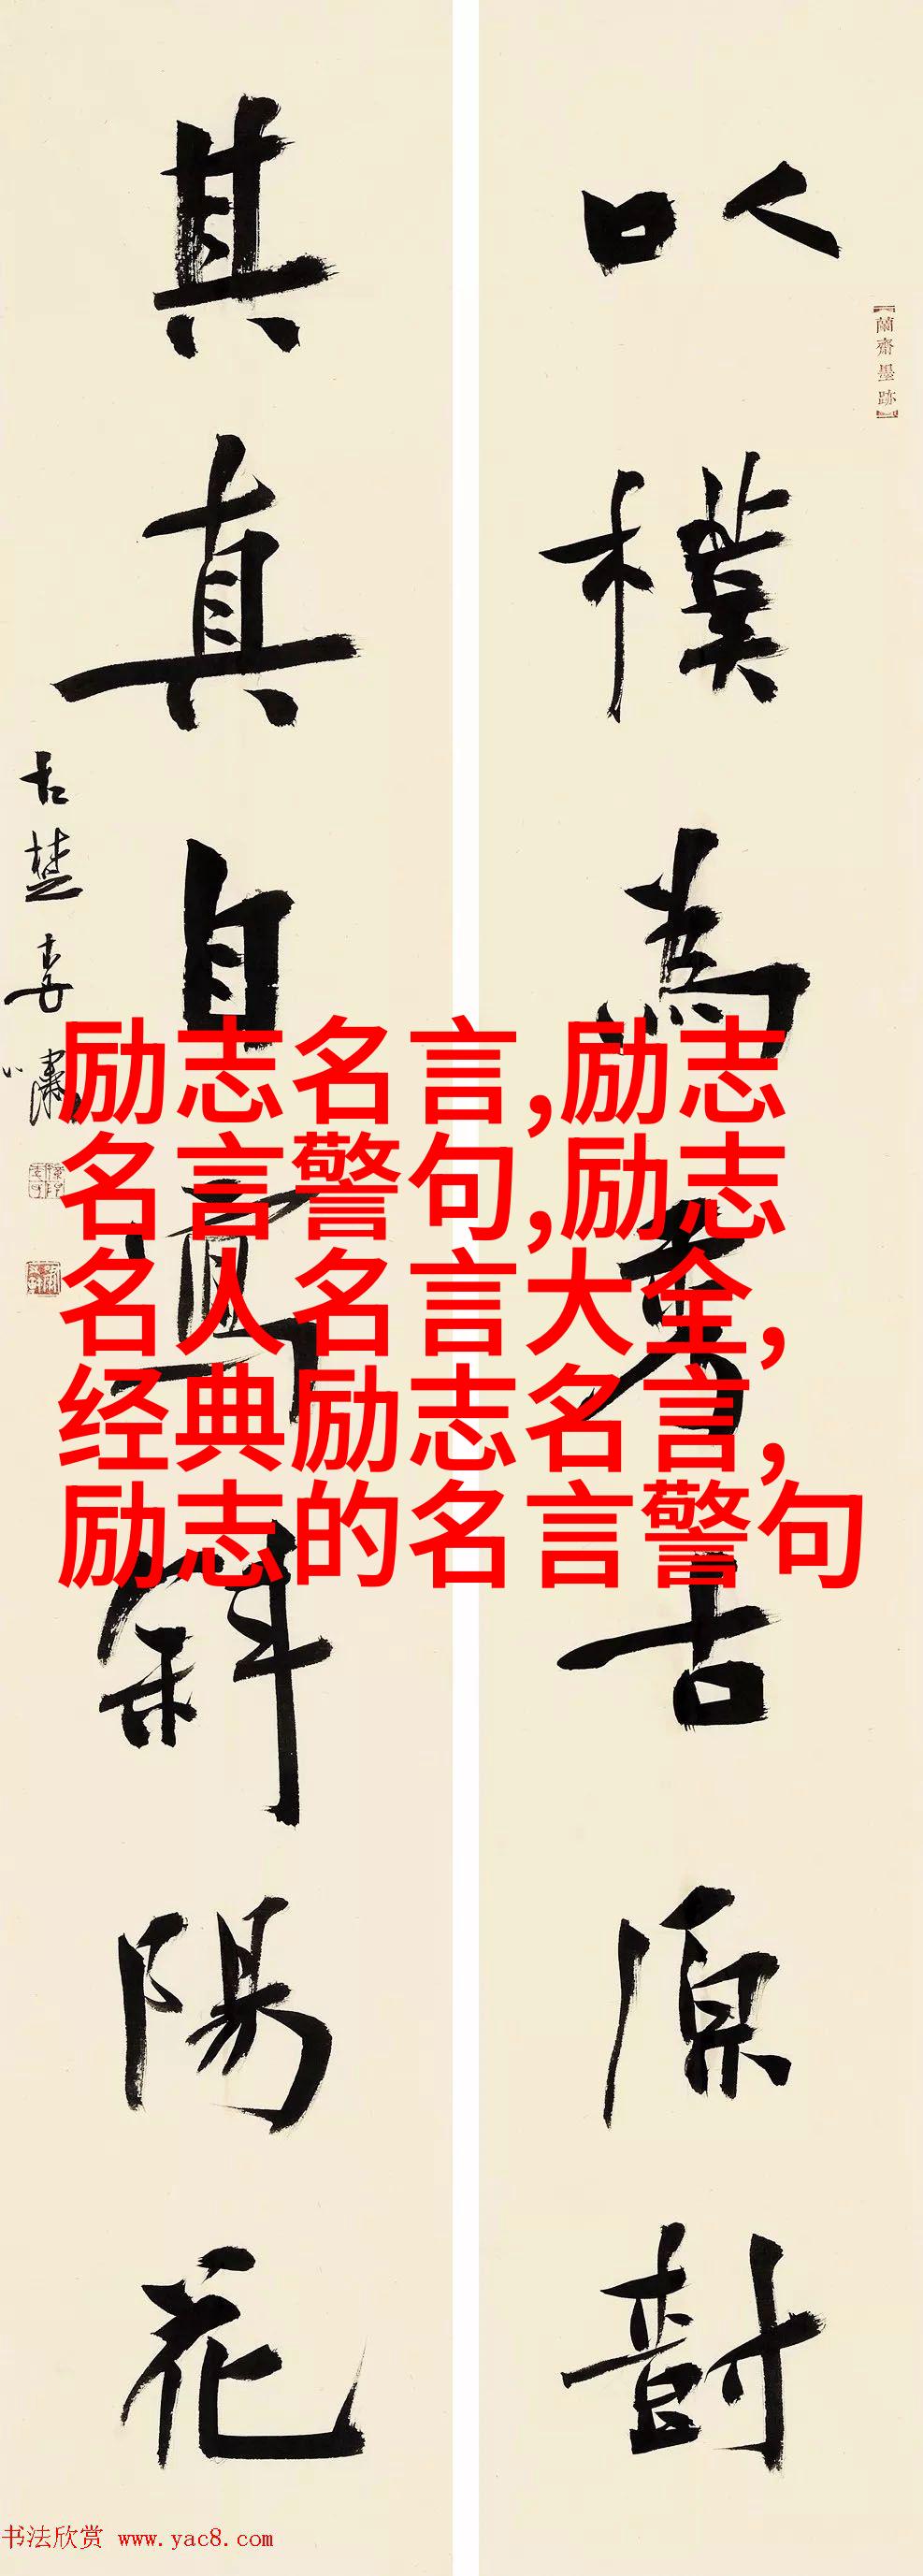 【蘭齋墨跡】
以樸為秀古原尌
其真自寫斜陽花
古楚
励志名言,励志
名言警句,励志
名人名言大全,
经典励志名言,
励志的名言警句
书法欣赏 www.yac8.com